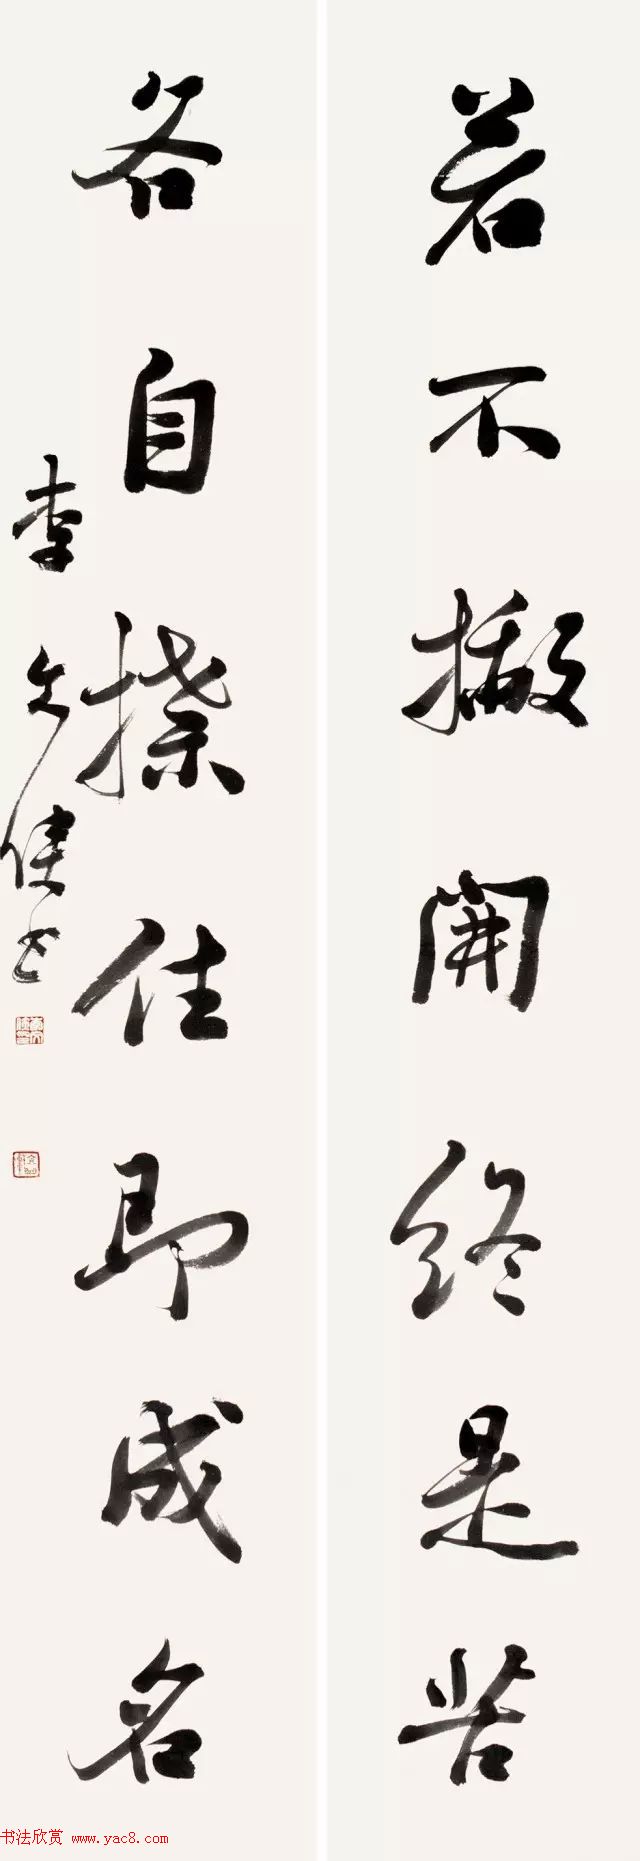 若不撇開終是苦
各自捺住即成名
李文书
书法欣赏 www.yac8.com